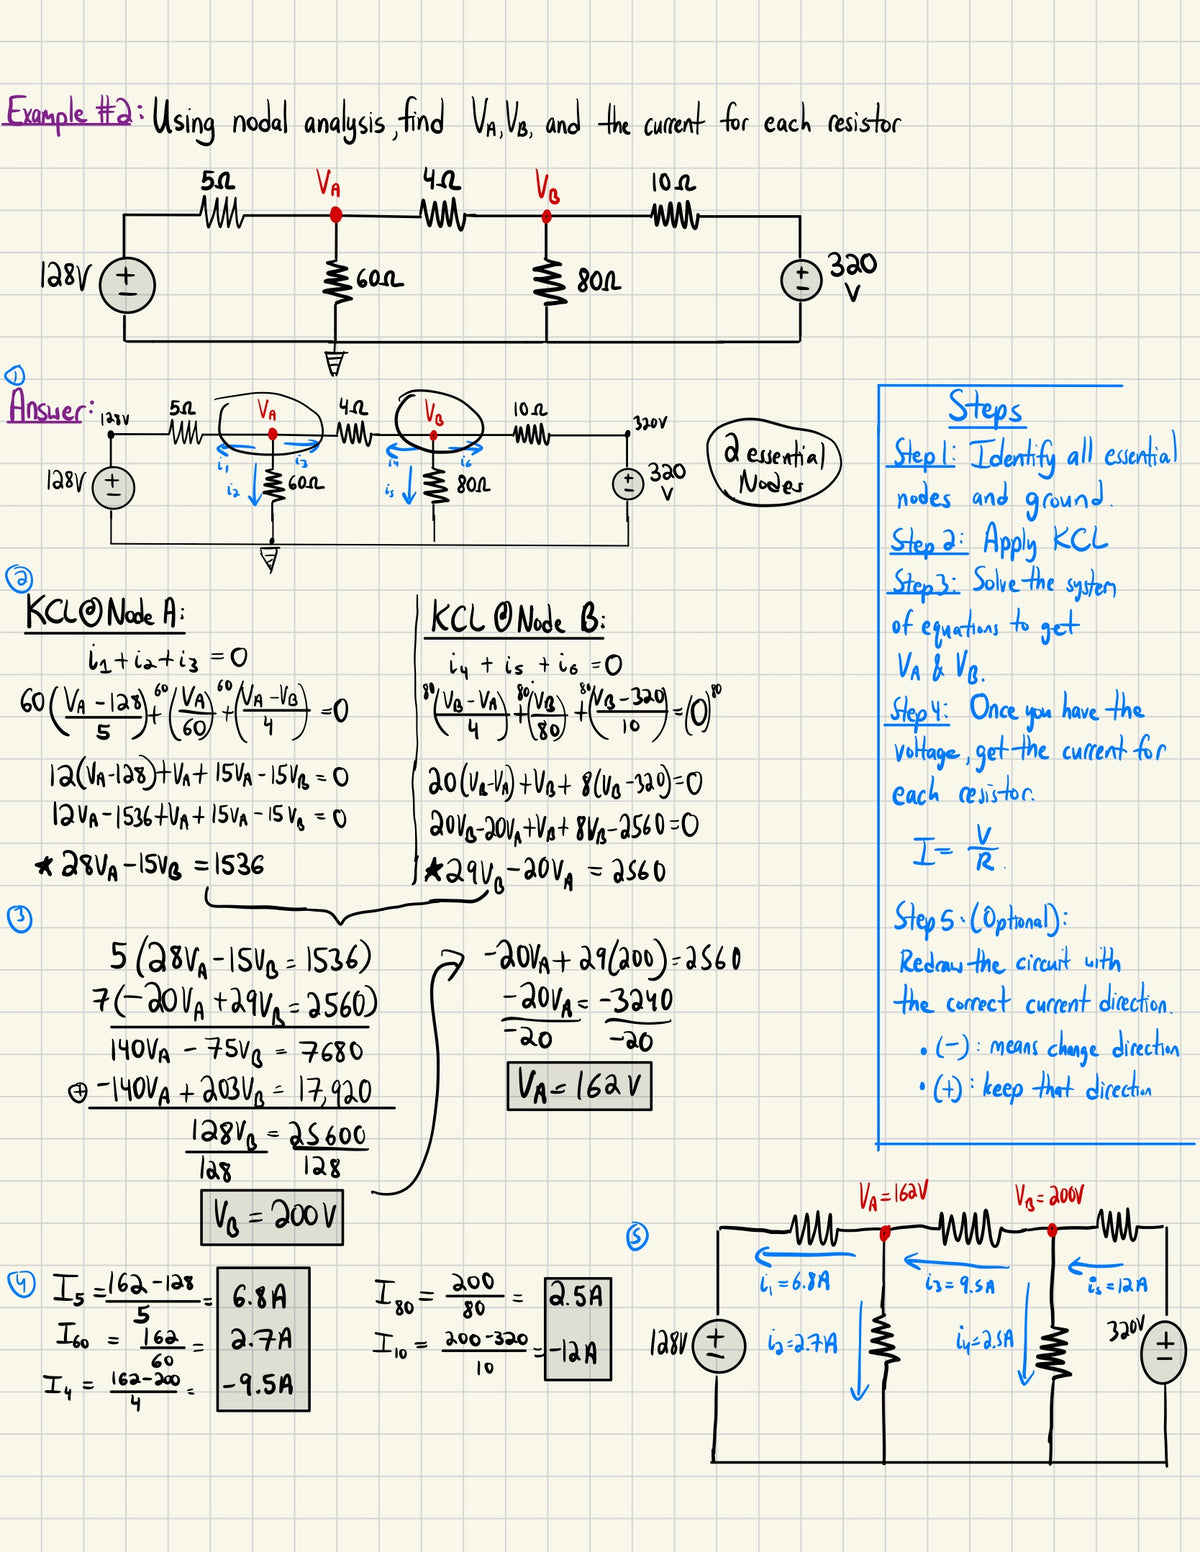 Example #2: Using nodal analysis, find VA, VB, and the current for each resistor
5Ω VA 4Ω VB 10Ω
128V + − 60Ω 80Ω + − 320 V
①
Answer:
128V 5Ω VA 4Ω VB 10Ω 320V
i1 i3 i4 i6
128V + − i2 60Ω i5 80Ω + − 320 V
2 essential
Nodes
Steps
Step 1: Identify all essential
nodes and ground.
Step 2: Apply KCL
Step 3: Solve the system
of equations to get
VA & VB.
Step 4: Once you have the
voltage, get the current for
each resistor.
I = V/R
Step 5. (Optional):
Redraw the circuit with
the correct current direction.
• (−): means change direction
• (+): keep that direction
②
KCL @ Node A:
i1 + i2 + i3 = 0
60((VA − 128)/5) + 60(VA/60) + 60((VA − VB)/4) = 0
12(VA−128)+VA+15VA−15VB = 0
12VA−1536+VA+15VA−15VB = 0
* 28VA −15VB = 1536
KCL @ Node B:
i4 + i5 + i6 = 0
80((VB − VA)/4) + 80(VB/80) + 80((VB − 320)/10) = (0)80
20(VB−VA)+VB+8(VB−320)=0
20VB−20VA+VB+8VB−2560=0
* 29VB −20VA = 2560
③
5(28VA −15VB = 1536)
7(−20VA +29VB = 2560)
140VA − 75VB = 7680
⊕ −140VA + 203VB = 17,920
128VB = 25600
128 128
VB = 200V
−20VA + 29(200) = 2560
−20VA = −3240
−20 −20
VA = 162V
④
I5 = (162−128)/5 = 6.8A
I60 = 162/60 = 2.7A
I4 = (162−200)/4 = −9.5A
I80 = 200/80 = 2.5A
I10 = (200−320)/10 = −12A
⑤
VA = 162V VB = 200V
i1 = 6.8A i3 = 9.5A i5 = 12A
128V + − i2 = 2.7A i4 = 2.5A 320V + −